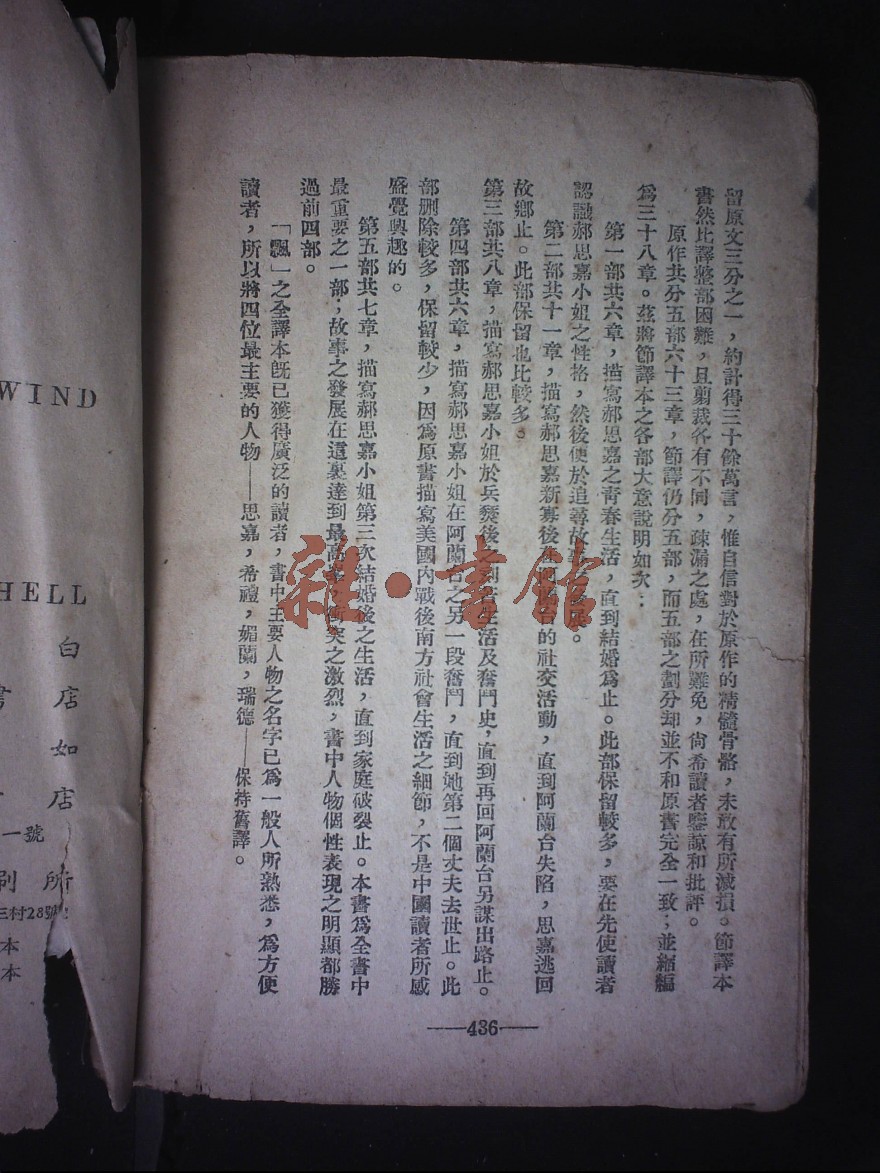 留原文三分之一，約計得三十餘萬言，惟自信對於原作的精髓骨骼，未敢有所減損。節譯本
書然比譯整部困難，且剪裁各有不同，疎漏之處，在所難免，尙希讀者鑒諒和批評。
原作共分五部六十三章，節譯仍分五部，而五部之劃分却並不和原書完全一致；並縮編
爲三十八章。茲將節譯本之各部大意說明如次：
第一部共六章，描寫郝思嘉之靑春生活，直到結婚爲止。此部保留較多，要在先使讀者
認識郝思嘉小姐之性格，然後便於追尋故事之發展。
第二部共十一章，描寫郝思嘉新寡後在阿蘭台的社交活動，直到阿蘭台失陷，思嘉逃回
故鄉止。此部保留也比較多。
第三部共八章，描寫郝思嘉小姐於兵燹後之刻苦生活及奮鬥史，直到再回阿蘭台另謀出路止。
第四部共六章，描寫郝思嘉小姐在阿蘭台之另一段奮鬥，直到她第二個丈夫去世止。此
部删除較多，保留較少，因爲原書描寫美國內戰後南方社會生活之細節，不是中國讀者所感
盛覺興趣的。
第五部共七章，描寫郝思嘉小姐第三次結婚後之生活，直到家庭破裂止。本書爲全書中
最重要之一部；故事之發展在這裏達到最高 衝突之激烈，書中人物個性表現之明顯都勝
過前四部。
「飄」之全譯本旣已獲得廣泛的讀者，書中主要人物之名字已爲一般人所熟悉，爲方便
讀者，所以將四位最主要的人物——思嘉，希禮，媚蘭，瑞德——保持舊譯。
——436——
WIND
HELL
白
書店
如
店
一號
刷所
三村28號
本
本
雜·書館